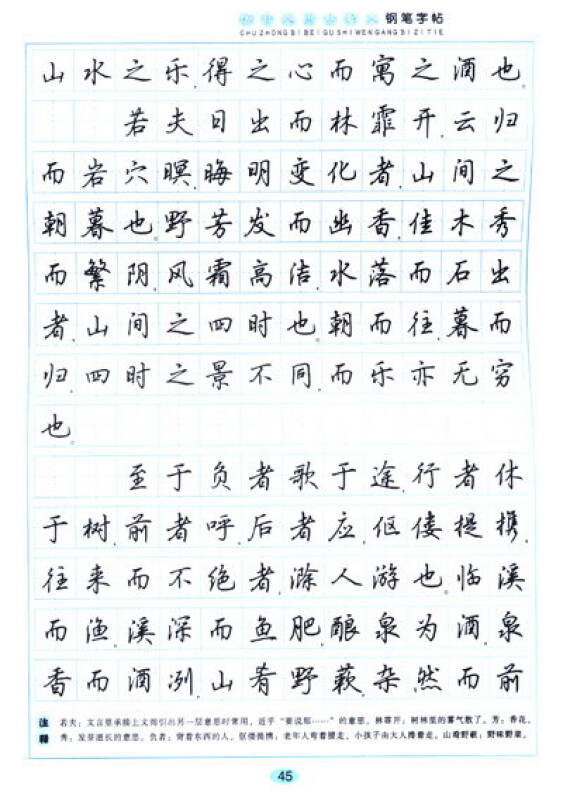 初中必背古诗文 钢笔字帖
CHUZHONGBIBEIGUSHIWENGANGBIZITIE
山水之乐，得之心而寓之酒也。
若夫日出而林霏开，云归
而岩穴暝，晦明变化者，山间之
朝暮也。野芳发而幽香，佳木秀
而繁阴，风霜高洁，水落而石出
者，山间之四时也。朝而往，暮而
归，四时之景不同，而乐亦无穷
也。
至于负者歌于途，行者休
于树，前者呼，后者应，伛偻提携，
往来而不绝者，滁人游也。临溪
而渔，溪深而鱼肥，酿泉为酒，泉
香而酒洌，山肴野蔌，杂然而前
注释
若夫：文言里承接上文而引出另一层意思时常用，近乎“要说那……”的意思。林霏开：树林里的雾气散了。芳：香花。
秀：发芽滋长的意思。负者：背着东西的人。伛偻提携：老年人弯着腰走，小孩子由大人搀着走。山肴野蔌：野味野菜。
45